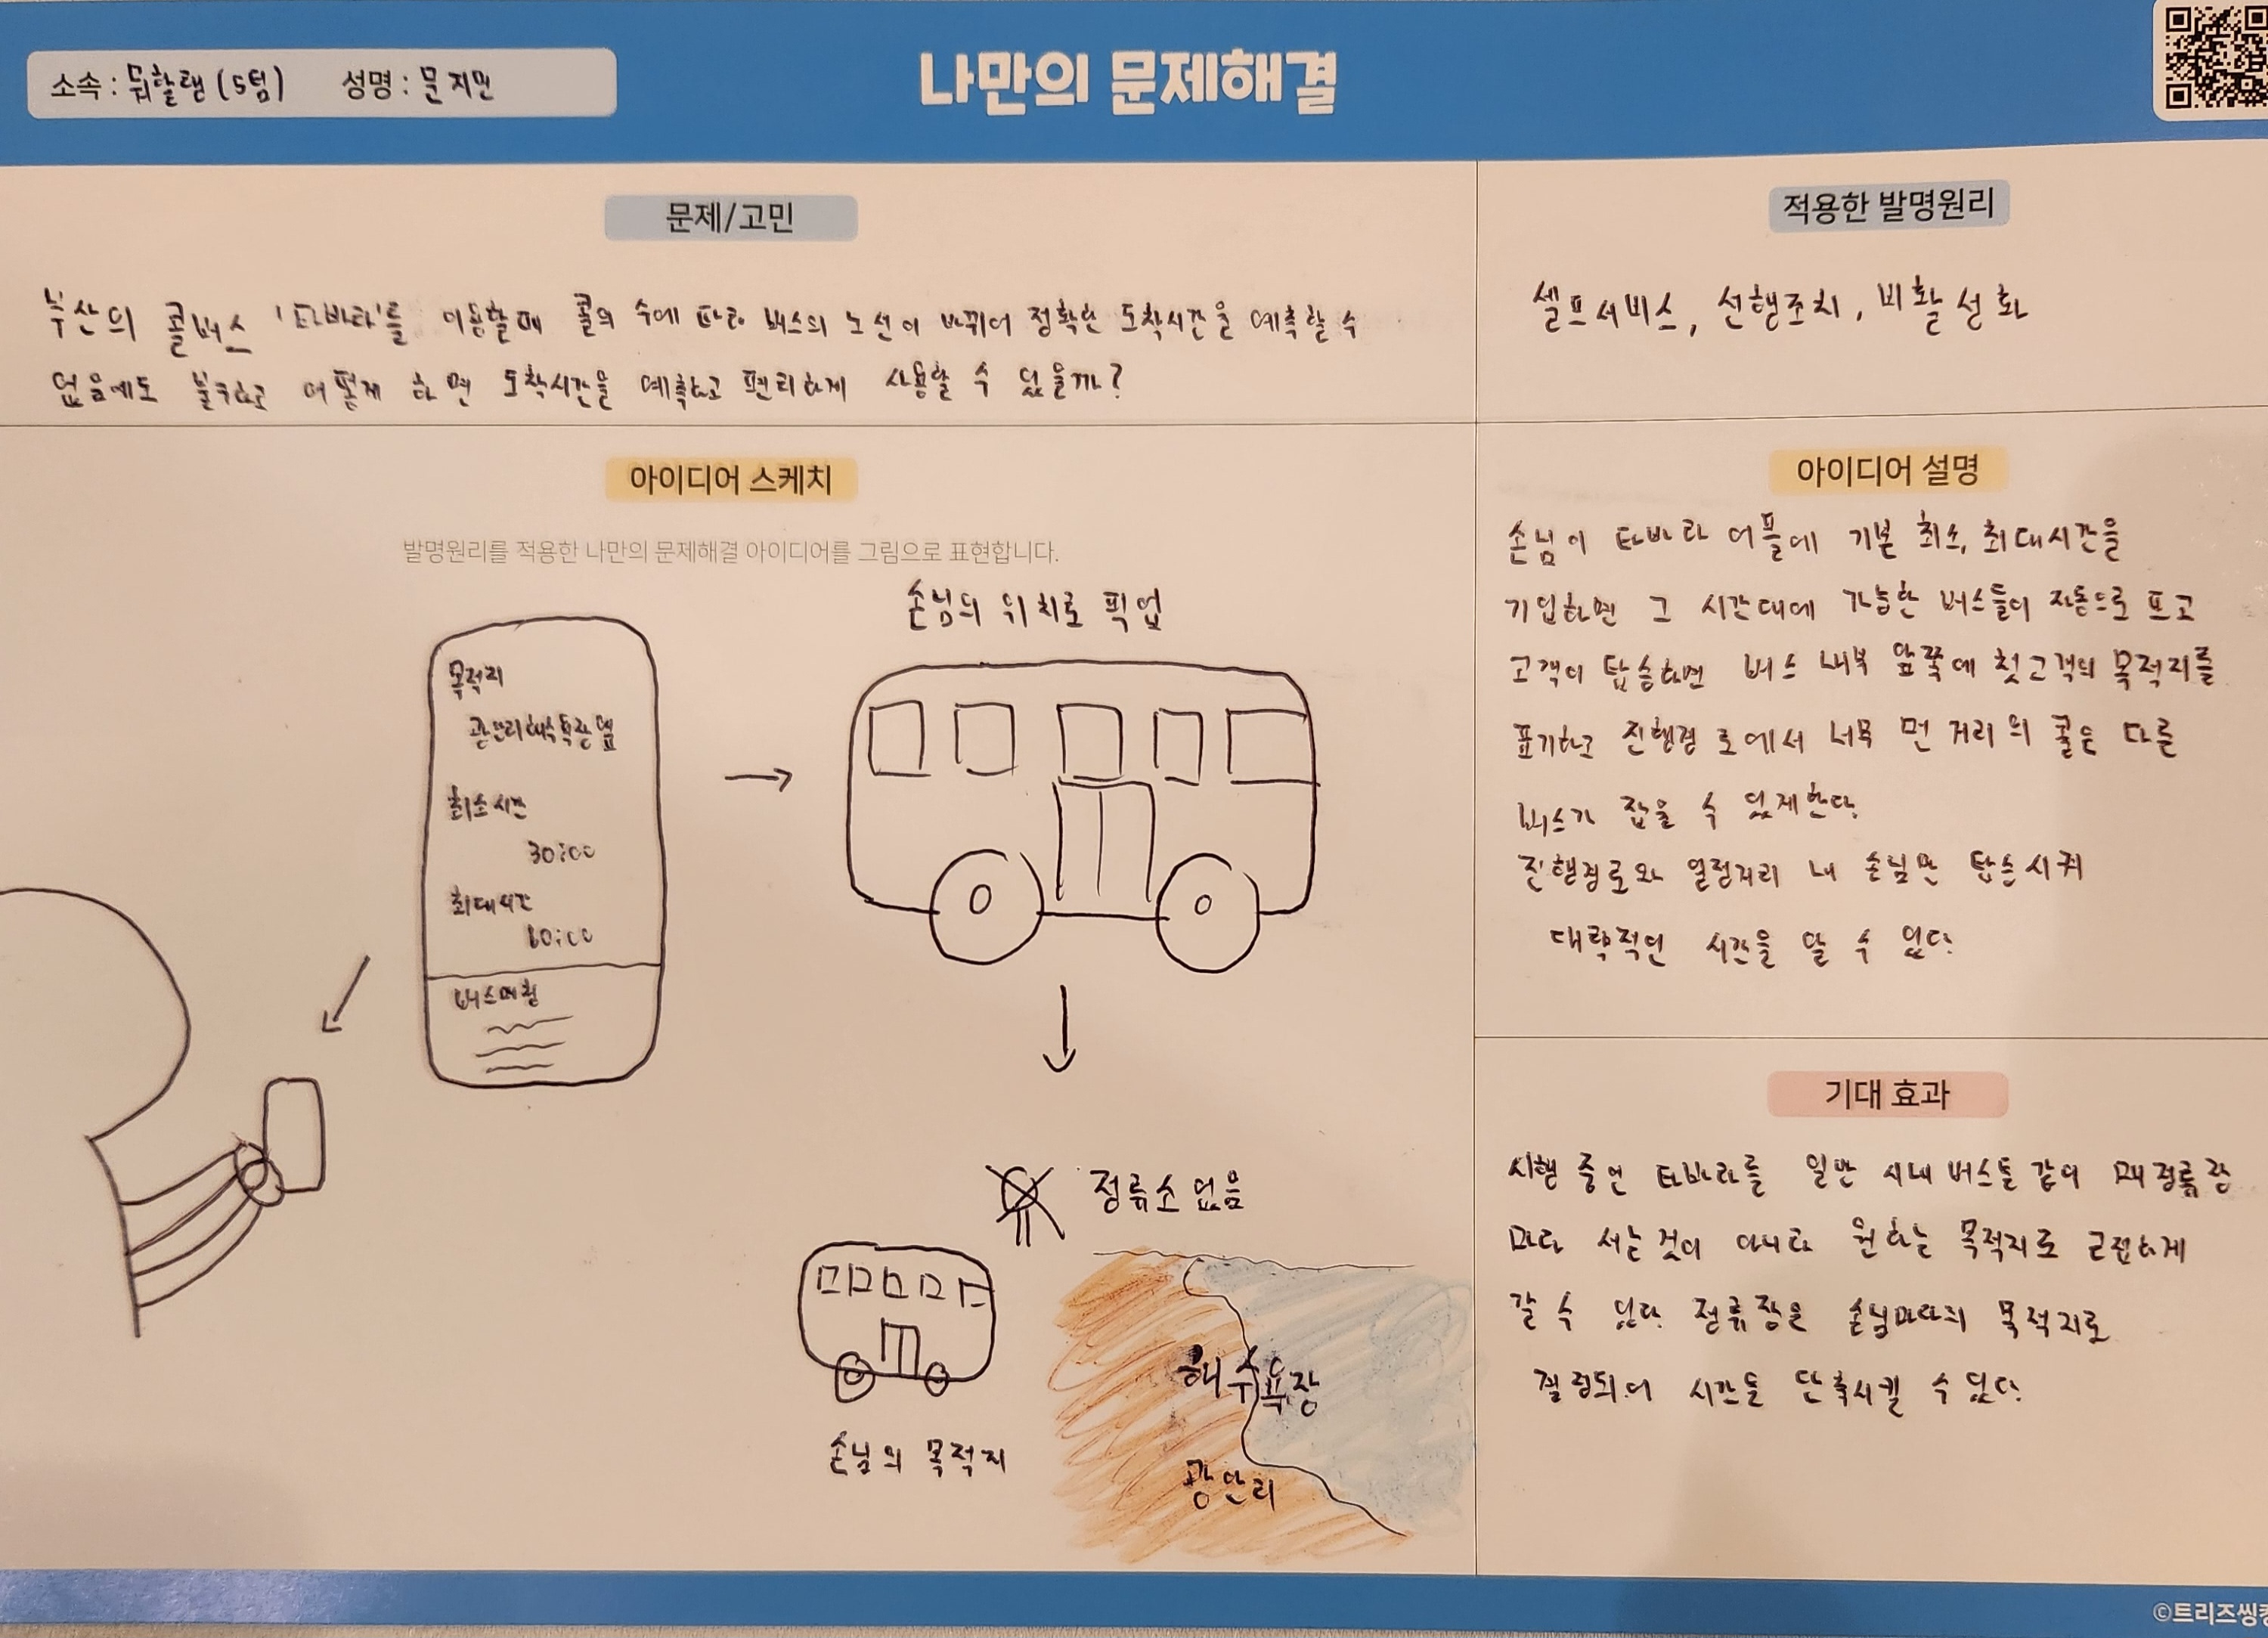 소속 : 뭐할램 (5팀) 성명 : 문지민
나만의 문제해결
문제/고민
부산의 콜버스 '타바라'를 이용할때 콜의 수에 따라 버스의 노선이 바뀌어 정확한 도착시간을 예측할 수
없음에도 불구하고 어떻게 하면 도착시간을 예측하고 편리하게 사용할 수 있을까?
적용한 발명원리
셀프서비스, 선행조치, 비활성화
아이디어 스케치
발명원리를 적용한 나만의 문제해결 아이디어를 그림으로 표현합니다.
손님의 위치로 픽업
목적지
최소시간
30:00
최대시간
60:00
버스매칭
정류소 없음
손님의 목적지
해수욕장
광안리
아이디어 설명
손님이 타바라 어플에 기본 최소, 최대시간을
기입하면 그 시간대에 가능한 버스들이 자동으로 뜨고
고객이 탑승하면 버스 내부 앞쪽에 첫고객의 목적지를
표기하고 진행경로에서 너무 먼 거리의 콜은 다른
버스가 잡을 수 있게한다.
진행경로와 일정거리 내 손님만 탑승시켜
대략적인 시간을 알 수 있다.
기대 효과
시행 중인 타바라를 일반 시내버스들 같이 매정류장
마다 서는 것이 아니라 원하는 목적지로 근접하게
갈 수 있다. 정류장은 손님마다의 목적지로
시간을 단축시킬 수 있다.
©트리즈씽킹